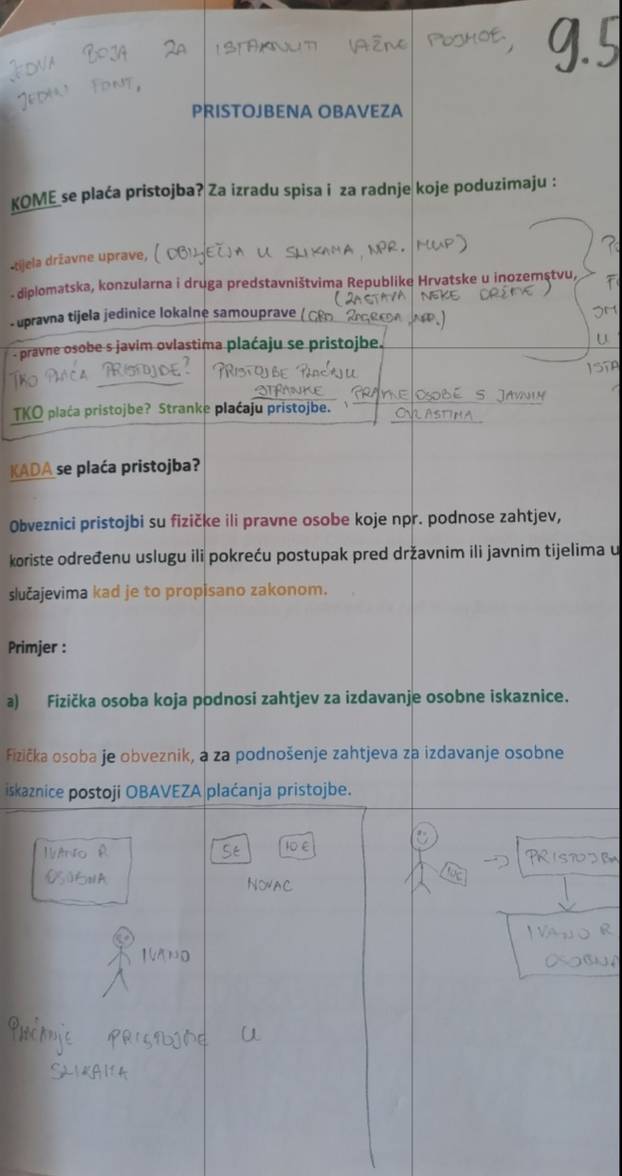 JEDNA BOJA ZA ISTAKNUTI VAŽNE POJMOE,
JEDAN FONT,
9.5
PRISTOJBENA OBAVEZA
KOME se plaća pristojba? Za izradu spisa i za radnje koje poduzimaju :
-tijela državne uprave, (OBILJEŽJA U SLIKAMA, NPR. MUP)
- diplomatska, konzularna i druga predstavništvima Republike Hrvatske u inozemstvu,
(ZASTAVA NEKE DRŽAVE)
- upravna tijela jedinice lokalne samouprave (GRD ZAGREDA, NPR.)
- pravne osobe s javim ovlastima plaćaju se pristojbe.
U
ISTA
TKO PLAĆA PRISTOJBE? PRISTOJBE PLAĆAJU
STRANKE, PRAVNE OSOBE S JAVNIM
OVLASTIMA
TKO plaća pristojbe? Stranke plaćaju pristojbe.
KADA se plaća pristojba?
Obveznici pristojbi su fizičke ili pravne osobe koje npr. podnose zahtjev,
koriste određenu uslugu ili pokreću postupak pred državnim ili javnim tijelima u
slučajevima kad je to propisano zakonom.
Primjer :
a) Fizička osoba koja podnosi zahtjev za izdavanje osobne iskaznice.
Fizička osoba je obveznik, a za podnošenje zahtjeva za izdavanje osobne
iskaznice postoji OBAVEZA plaćanja pristojbe.
IVANO R
OSOBNA
5€ 10€
NOVAC
IVANO
10€
PRISTOJBA
IVANO R
OSOBNA
PLAĆANJE PRISTOJBE U
SLIKAMA